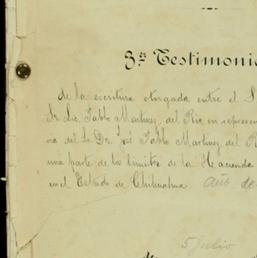 3er Testimonio
de la escritura otorgada entre el S
Sr. Lic. Pablo Martinez del Rio en represen
no del Sr. Dr. José Pablo Martinez del R
una parte de los limites de la Hacienda
en el Estado de Chihuahua Año de
5 Julio